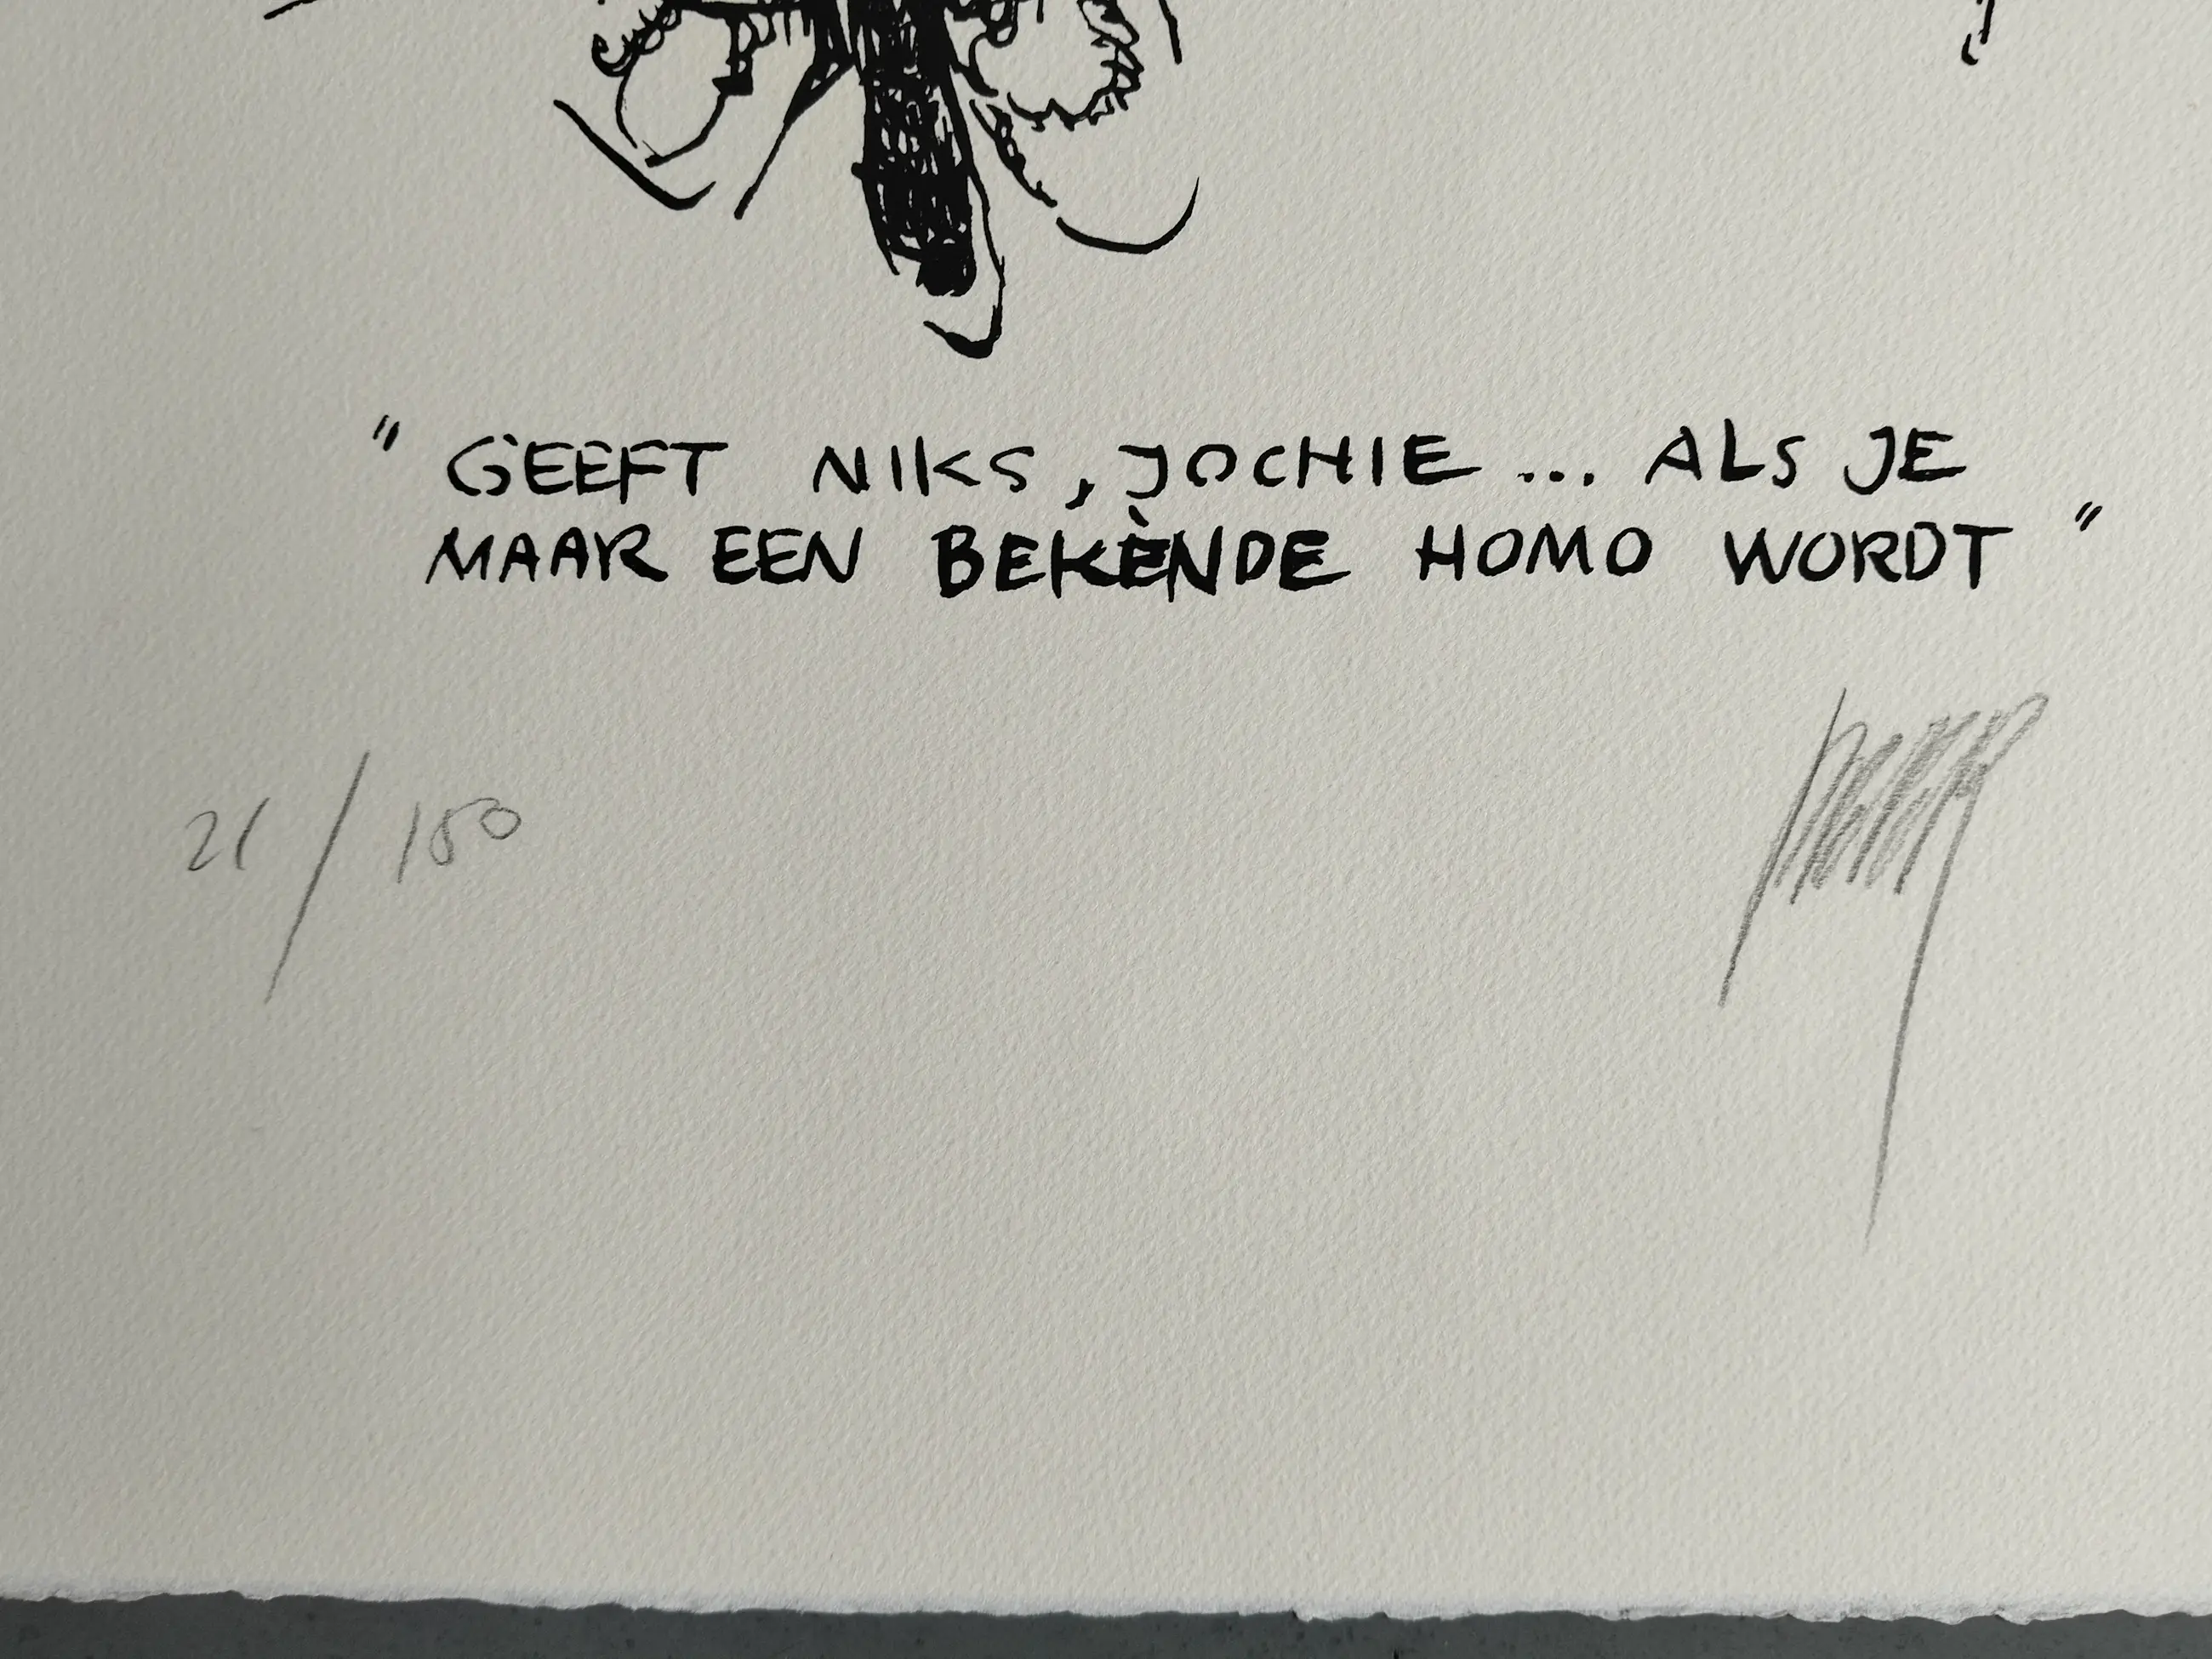 " GEEFT NIKS, JOCHIE... ALS JE
MAAR EEN BEKÈNDE HOMO WORDT "
21 / 150